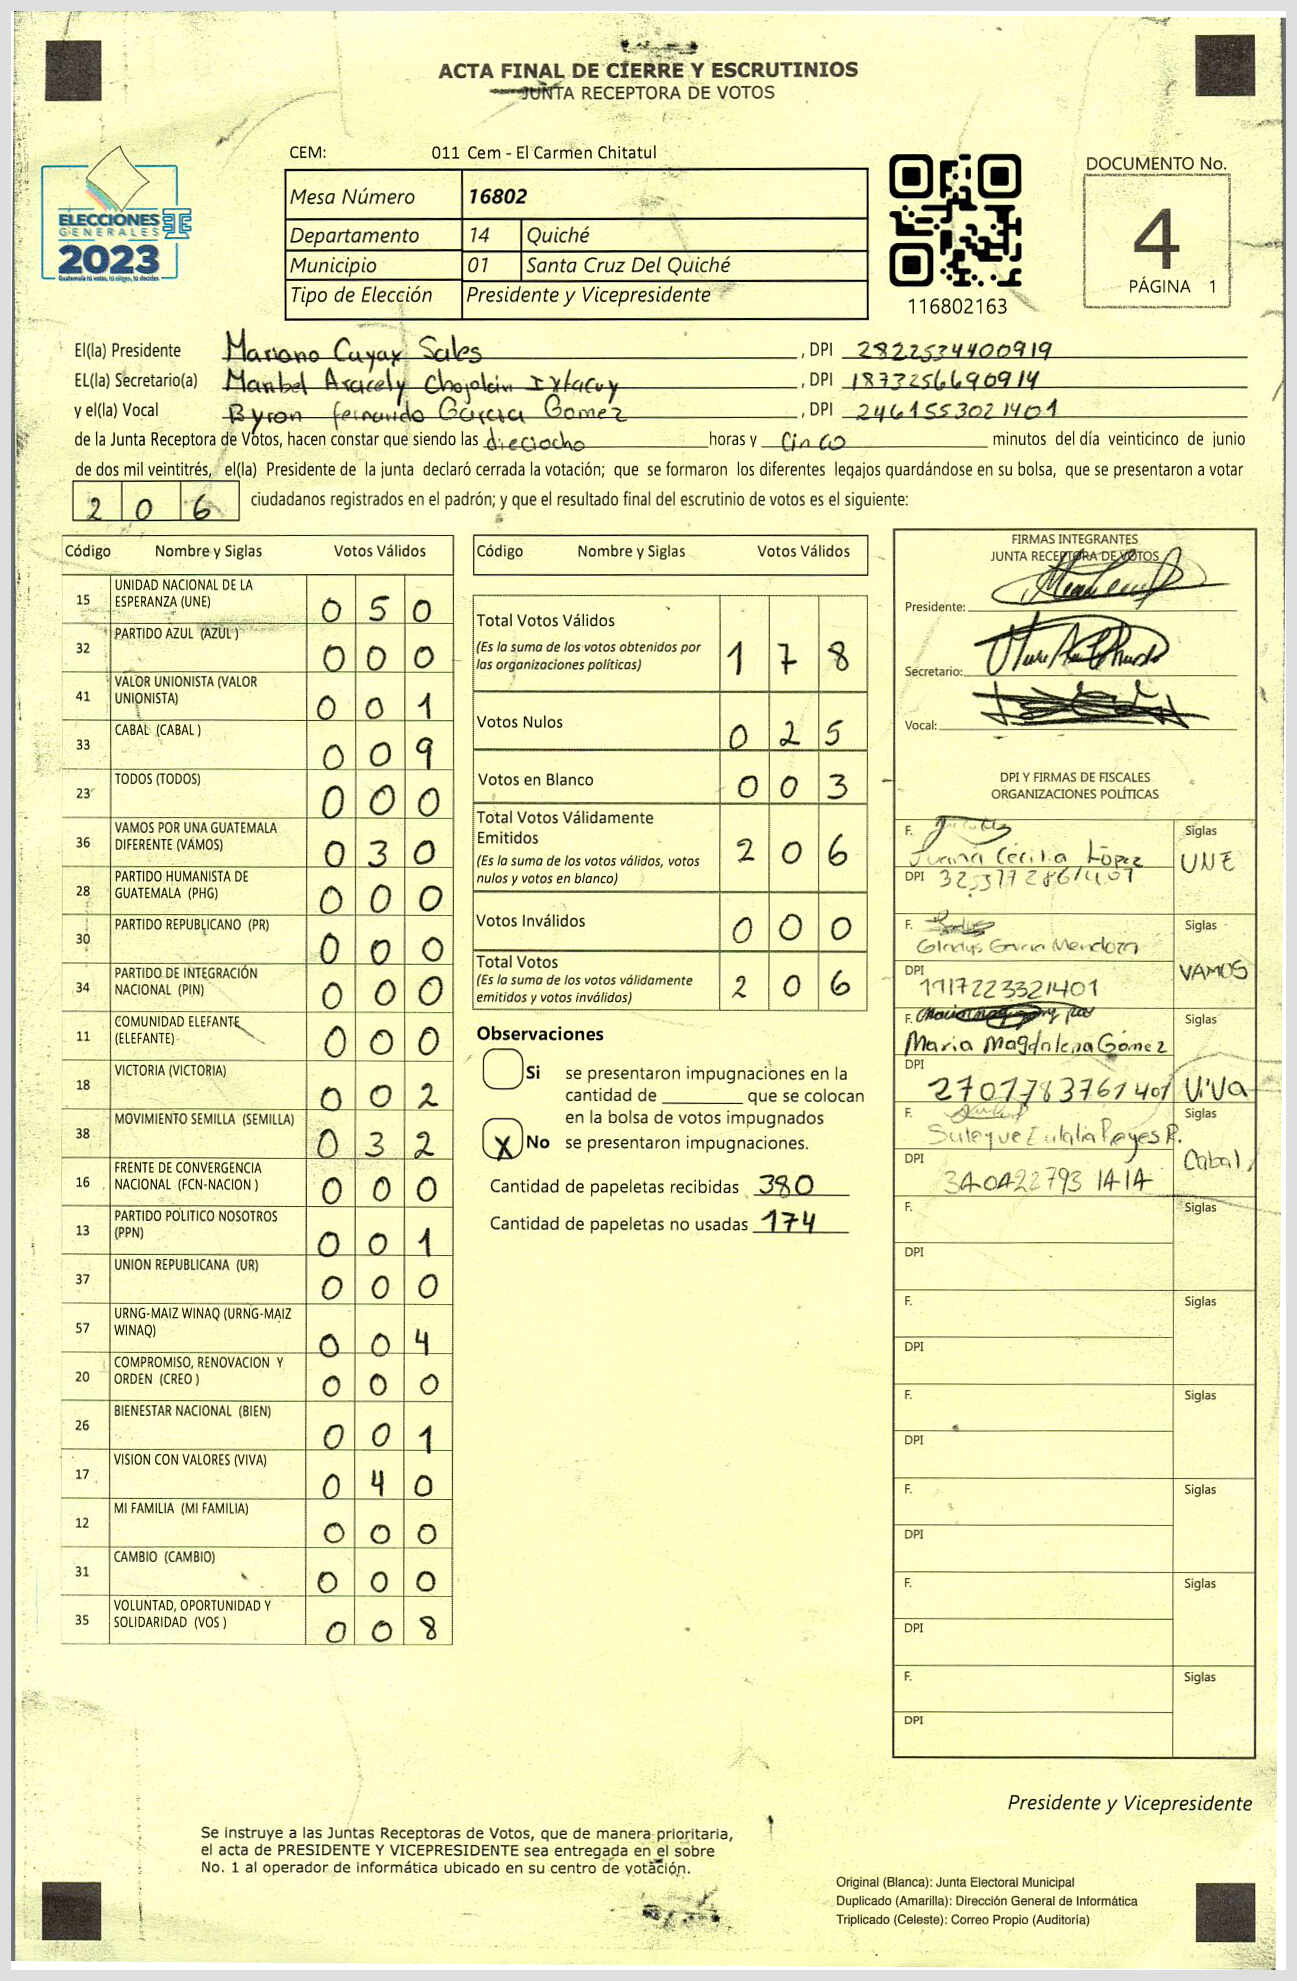 ACTA FINAL DE CIERRE Y ESCRUTINIOS
JUNTA RECEPTORA DE VOTOS
ELECCIONES
GENERALES
2023
Guatemala tú votas, tú eliges, tú decides
CEM: 011 Cem - El Carmen Chitatul
Mesa Número 16802
Departamento 14 Quiché
Municipio 01 Santa Cruz Del Quiché
Tipo de Elección Presidente y Vicepresidente
116802163
DOCUMENTO No.
4
PÁGINA 1
El(la) Presidente Mariano Cuyax Sales, DPI 2822534400919
EL(la) Secretario(a) Maribel Aracely Chojolán Ixtacuy, DPI 1873256690914
y el(la) Vocal Byron fernando García Gomez, DPI 2461553021401
de la Junta Receptora de Votos, hacen constar que siendo las dieciocho horas y cinco minutos del día veinticinco de junio
de dos mil veintitrés, el(la) Presidente de la junta declaró cerrada la votación; que se formaron los diferentes legajos quardándose en su bolsa, que se presentaron a votar
206 ciudadanos registrados en el padrón; y que el resultado final del escrutinio de votos es el siguiente:
Código Nombre y Siglas Votos Válidos
15 UNIDAD NACIONAL DE LA ESPERANZA (UNE) 050
32 PARTIDO AZUL (AZUL ) 000
41 VALOR UNIONISTA (VALOR UNIONISTA) 001
33 CABAL (CABAL ) 009
23 TODOS (TODOS) 000
36 VAMOS POR UNA GUATEMALA DIFERENTE (VAMOS) 030
28 PARTIDO HUMANISTA DE GUATEMALA (PHG) 000
30 PARTIDO REPUBLICANO (PR) 000
34 PARTIDO DE INTEGRACIÓN NACIONAL (PIN) 000
11 COMUNIDAD ELEFANTE (ELEFANTE) 000
18 VICTORIA (VICTORIA) 002
38 MOVIMIENTO SEMILLA (SEMILLA) 032
16 FRENTE DE CONVERGENCIA NACIONAL (FCN-NACION ) 000
13 PARTIDO POLITICO NOSOTROS (PPN) 001
37 UNION REPUBLICANA (UR) 000
57 URNG-MAIZ WINAQ (URNG-MAIZ WINAQ) 004
20 COMPROMISO, RENOVACION Y ORDEN (CREO ) 000
26 BIENESTAR NACIONAL (BIEN) 001
17 VISION CON VALORES (VIVA) 040
12 MI FAMILIA (MI FAMILIA) 000
31 CAMBIO (CAMBIO) 000
35 VOLUNTAD, OPORTUNIDAD Y SOLIDARIDAD (VOS ) 008
Código Nombre y Siglas Votos Válidos
Total Votos Válidos 178
(Es la suma de los votos obtenidos por
las organizaciones políticas)
Votos Nulos 025
Votos en Blanco 003
Total Votos Válidamente
Emitidos 206
(Es la suma de los votos válidos, votos
nulos y votos en blanco)
Votos Inválidos 000
Total Votos 206
(Es la suma de los votos válidamente
emitidos y votos inválidos)
Observaciones
Si se presentaron impugnaciones en la
cantidad de ________ que se colocan
en la bolsa de votos impugnados
X No se presentaron impugnaciones.
Cantidad de papeletas recibidas 380
Cantidad de papeletas no usadas 174
FIRMAS INTEGRANTES
JUNTA RECEPTORA DE VOTOS
Presidente:
Secretario:
Vocal:
DPI Y FIRMAS DE FISCALES
ORGANIZACIONES POLÍTICAS
F. Siglas
Juana Cecilia López UNE
DPI
F. Siglas
Gladys García Mendoza
DPI VAMOS
1917223321401
F. Siglas
Maria Magdalena Gómez
DPI
2701783761401 ViVa
F. Siglas
Reyes R.
DPI Cabal
F. Siglas
DPI
F. Siglas
DPI
F. Siglas
DPI
F. Siglas
DPI
F. Siglas
DPI
F. Siglas
DPI
Presidente y Vicepresidente
Se instruye a las Juntas Receptoras de Votos, que de manera prioritaria,
el acta de PRESIDENTE Y VICEPRESIDENTE sea entregada en el sobre
No. 1 al operador de informática ubicado en su centro de votación.
Original (Blanca): Junta Electoral Municipal
Duplicado (Amarilla): Dirección General de Informática
Triplicado (Celeste): Correo Propio (Auditoría)